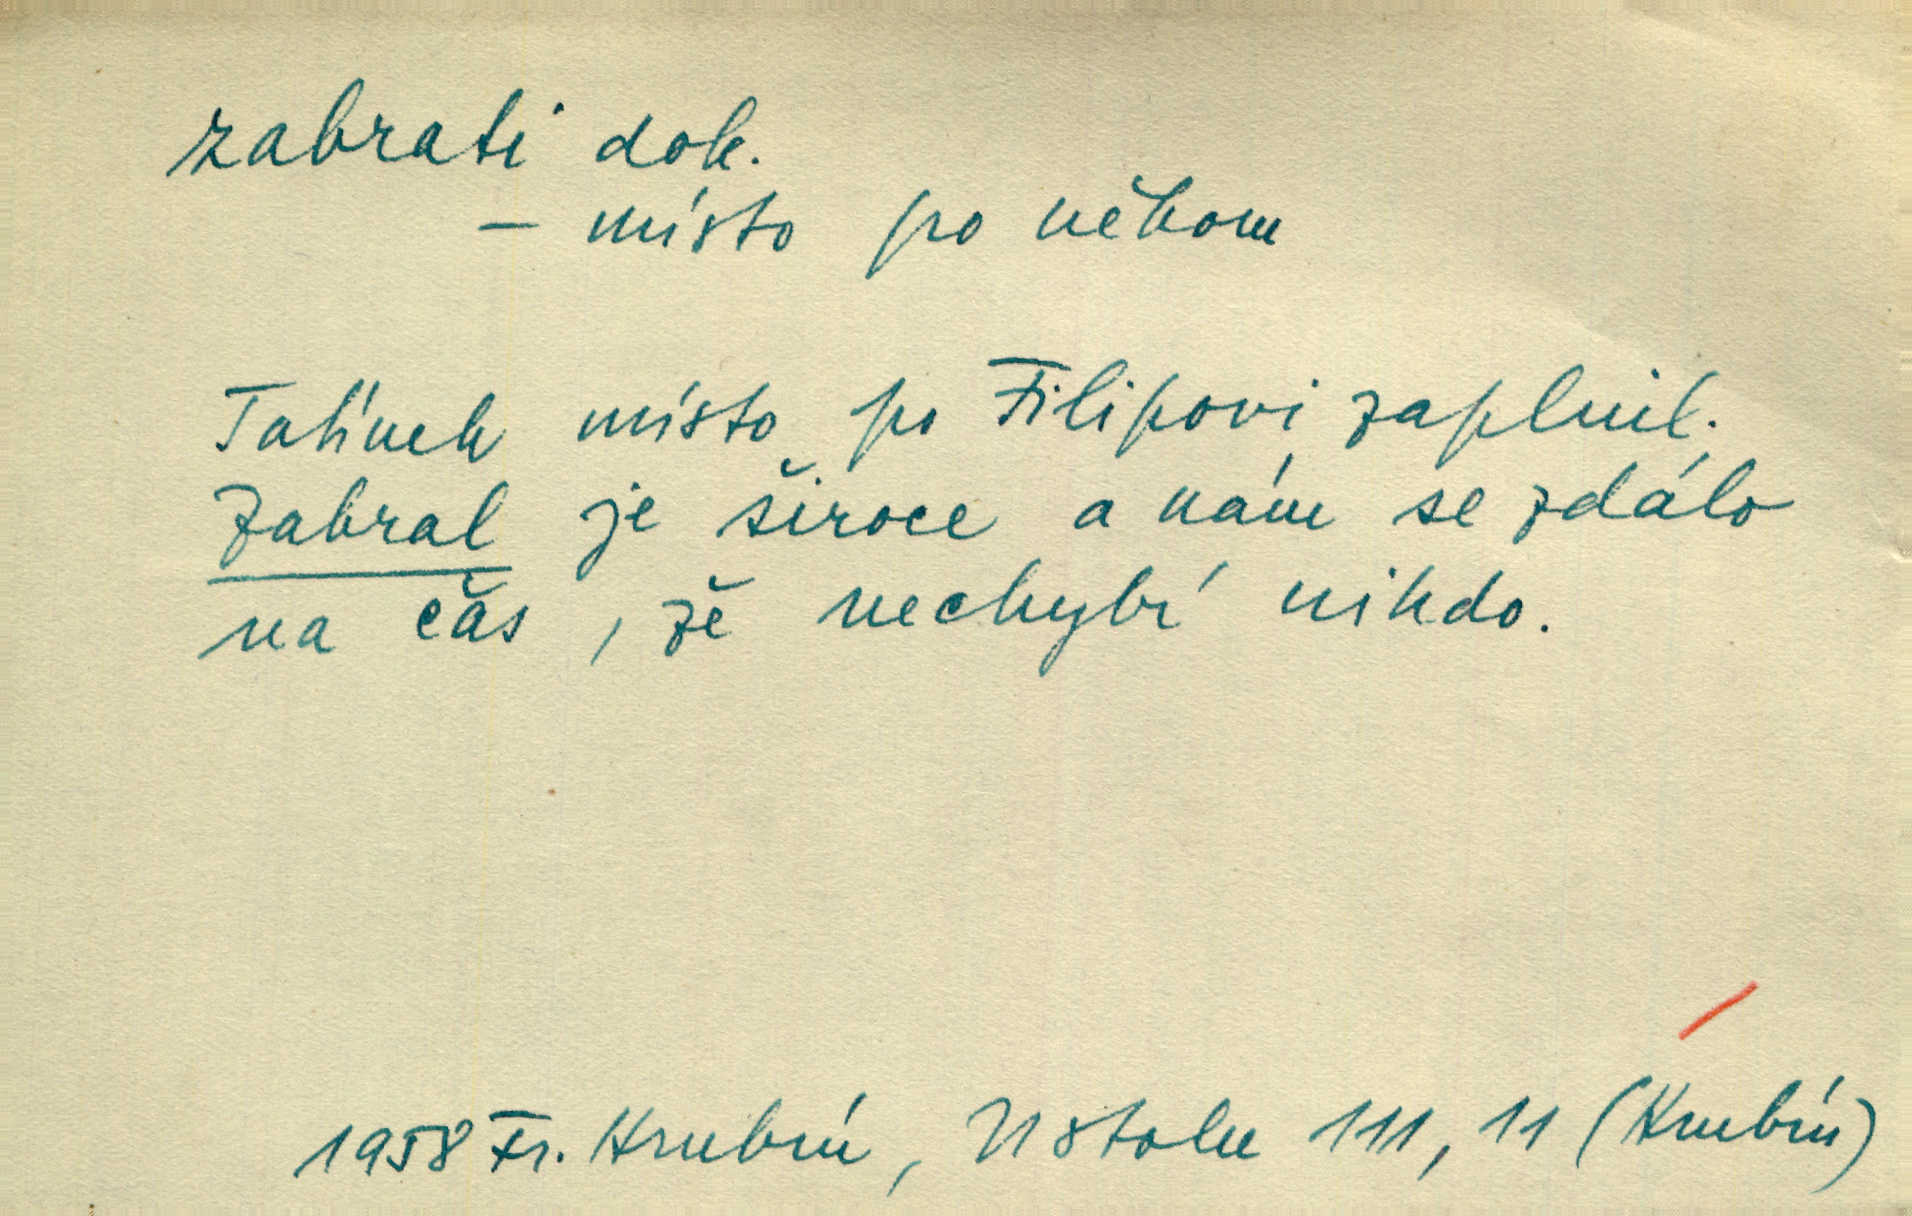 zabrati dok.
– místo po někom
Tatínek místo po Filipovi zaplnil.
Zabral je široce a nám se zdálo
na čas, že nechybí nikdo.
1958 Fr. Hrubín, U stolu 111, 11 (Hrubín)